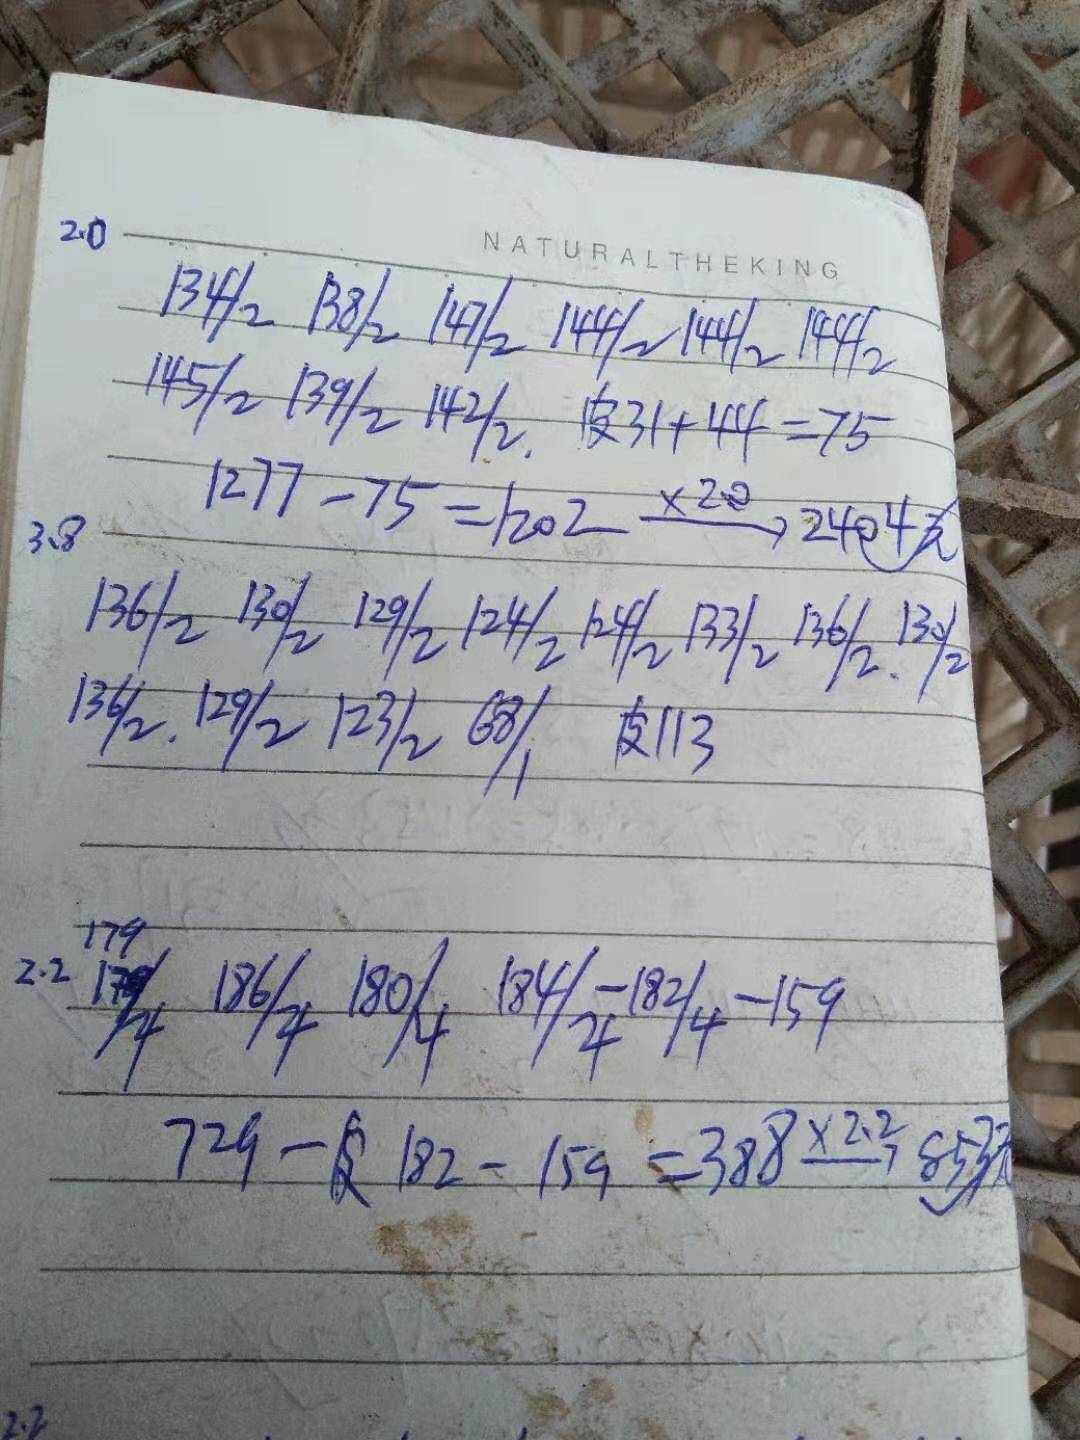 NATURALTHEKING
2.0
134/2 138/2 147/2 144/2 144/2 144/2
145/2 139/2 142/2. 皮31+44=75
1277-75=1202 ×2.0→ 2404元
3.8
136/2 130/2 129/2 124/2 124/2 133/2 136/2. 130/2
136/2. 129/2 123/2 68/1 皮113
179
2.2 179/4 186/4 180/4 184/4-182/4-159
729-皮182-159=388 ×2.2→ 853元
2.2